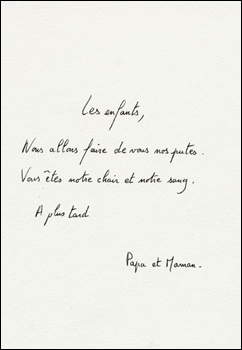 Les enfants,
Nous allons faire de vous nos putes.
Vous êtes notre chair et notre sang.
A plus tard
Papa et Maman.